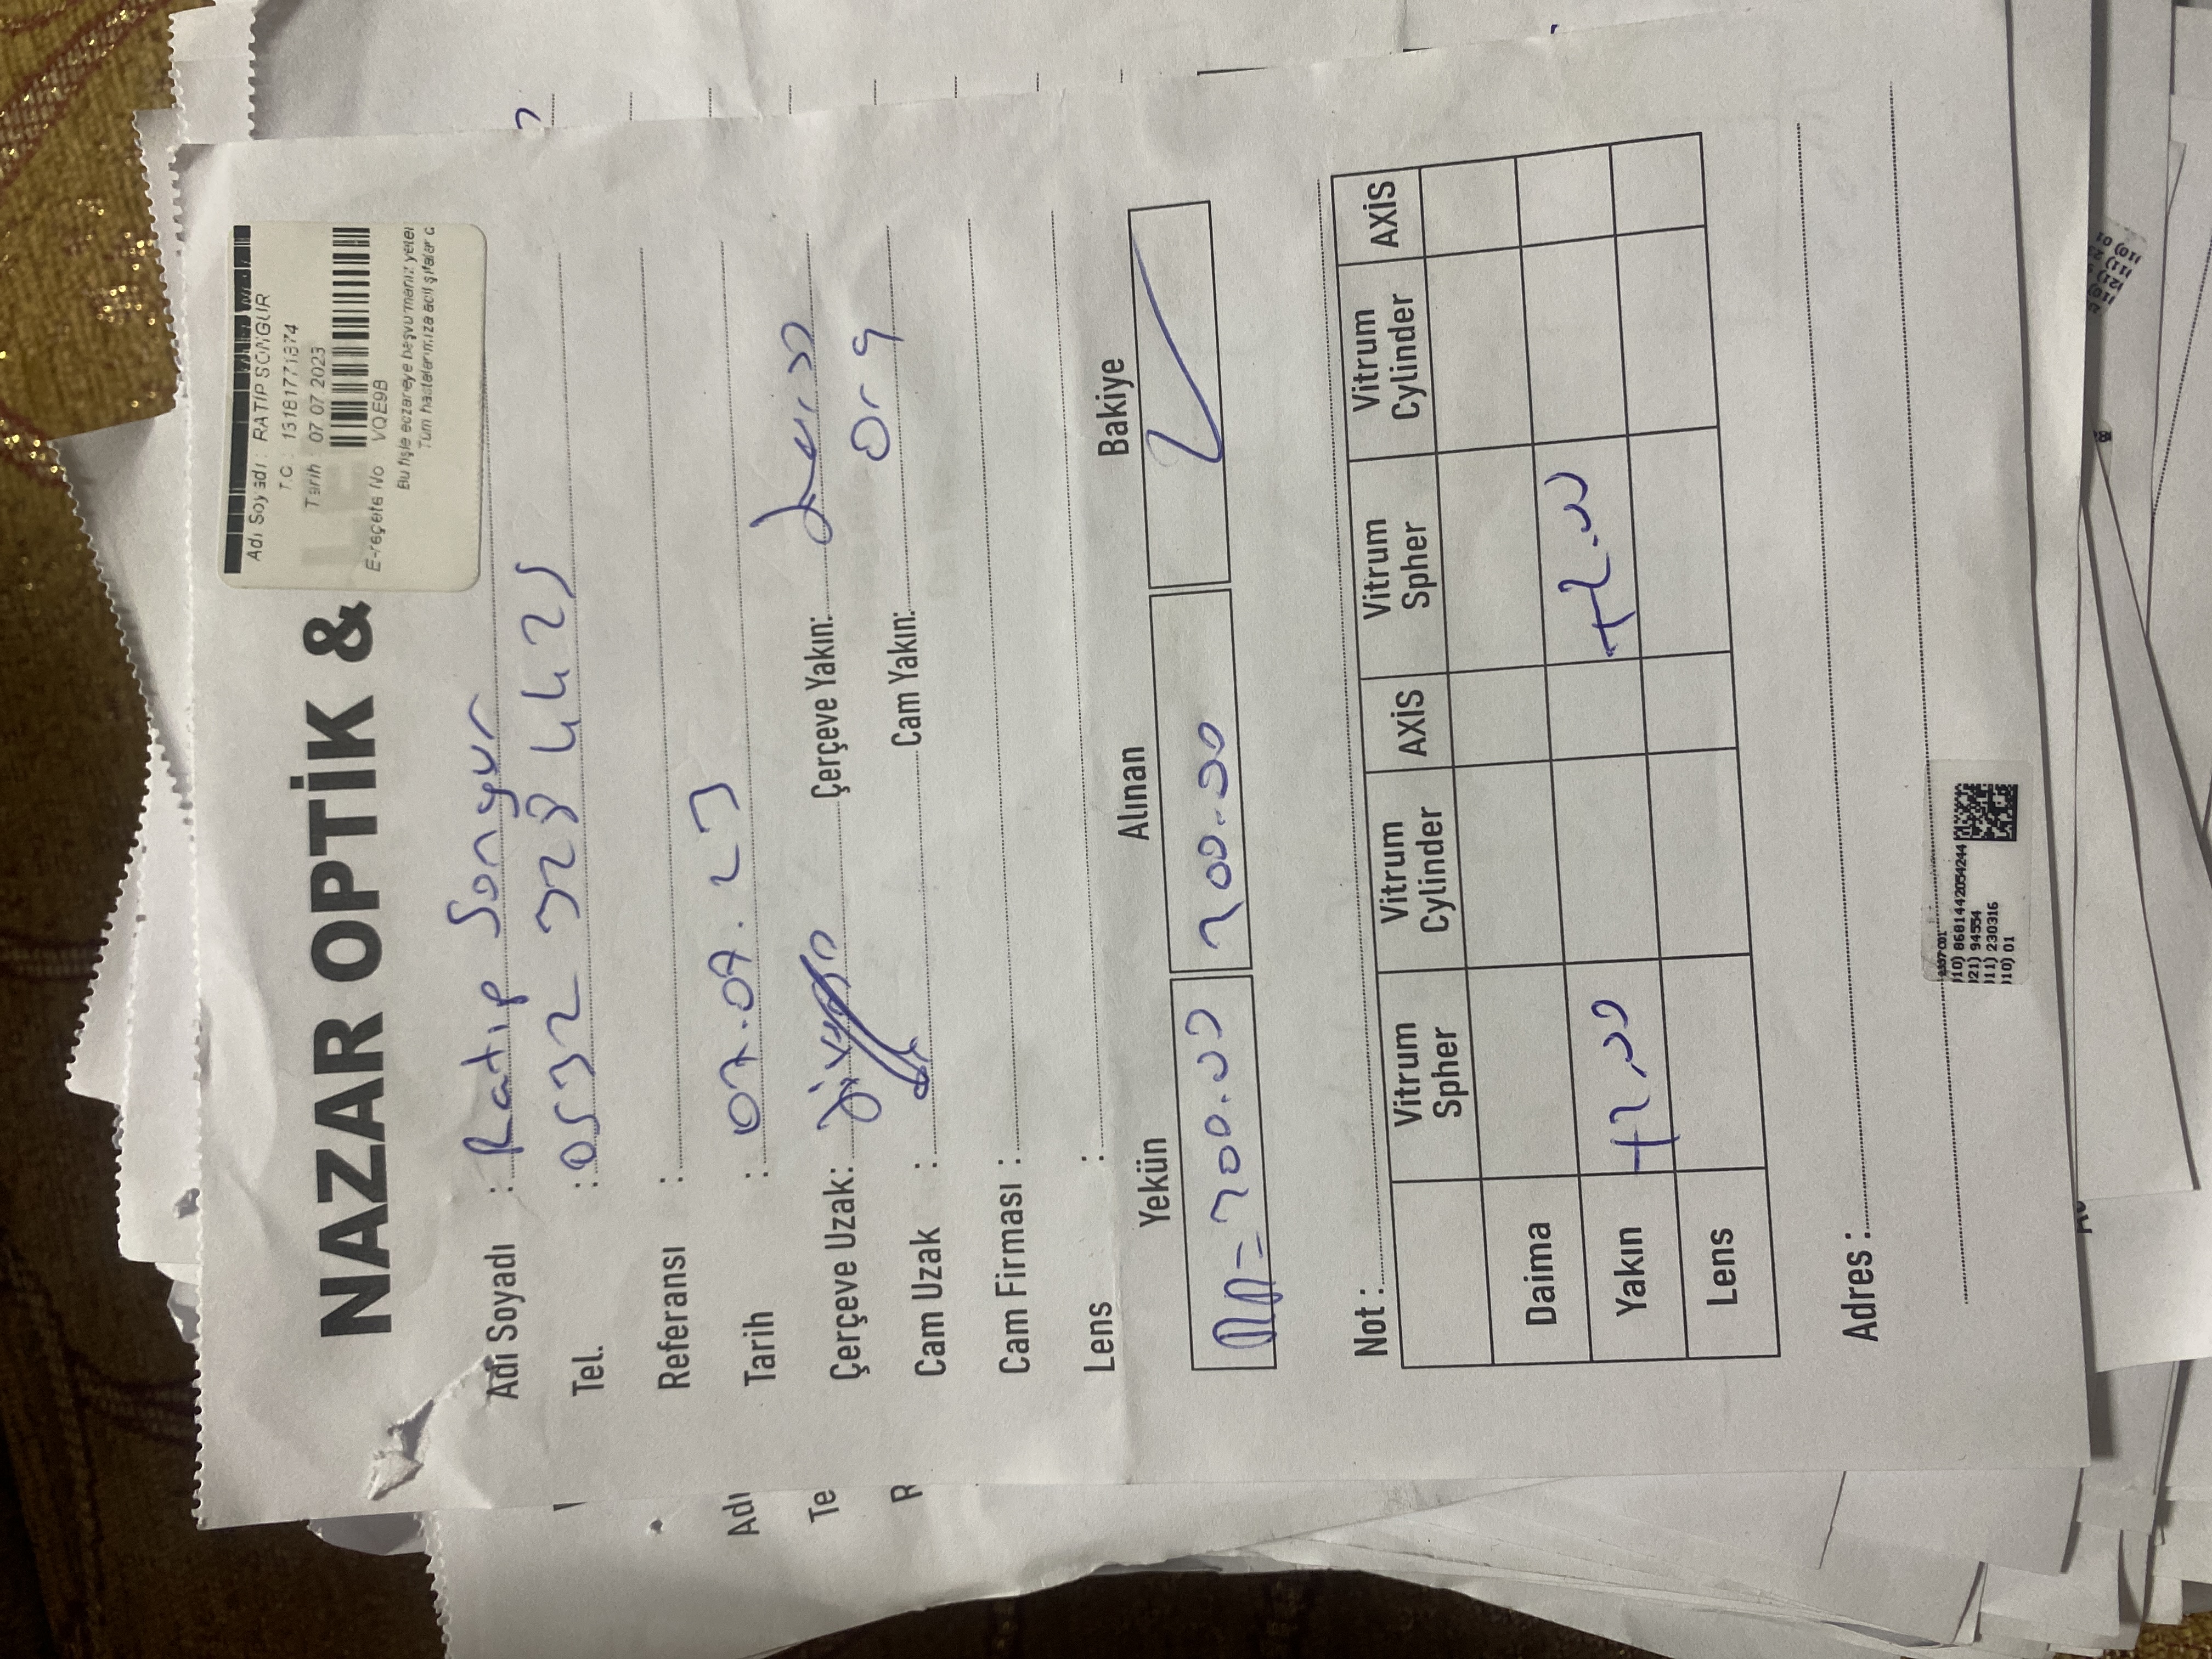 Adı Soyadı : RATİP SONGUR
T.C : 13181771874
Tarih 07.07.2023
E-reçete No VQE9B
Bu fişle eczaneye başvurmanız yeter
Tüm hastalarımıza acil şifalar d
NAZAR OPTİK & LE
Adı Soyadı : Ratıp Songur
Tel. : 0532 328 4425
Referansı :
Tarih : 07.07.23
Çerçeve Uzak: Çerçeve Yakın:
Cam Uzak : Cam Yakın: Org
Cam Firması :
Lens :
Yekün Alınan Bakiye
= 200.00 200.00
Not :
Vitrum Spher Vitrum Cylinder AXİS Vitrum Spher Vitrum Cylinder AXİS
Daima
Yakın +2.00 +2.00
Lens
Adres :
2337 C01
)10) 8681442054244
)21) 94554
)11) 230316
)10) 01
Adı
Te
R